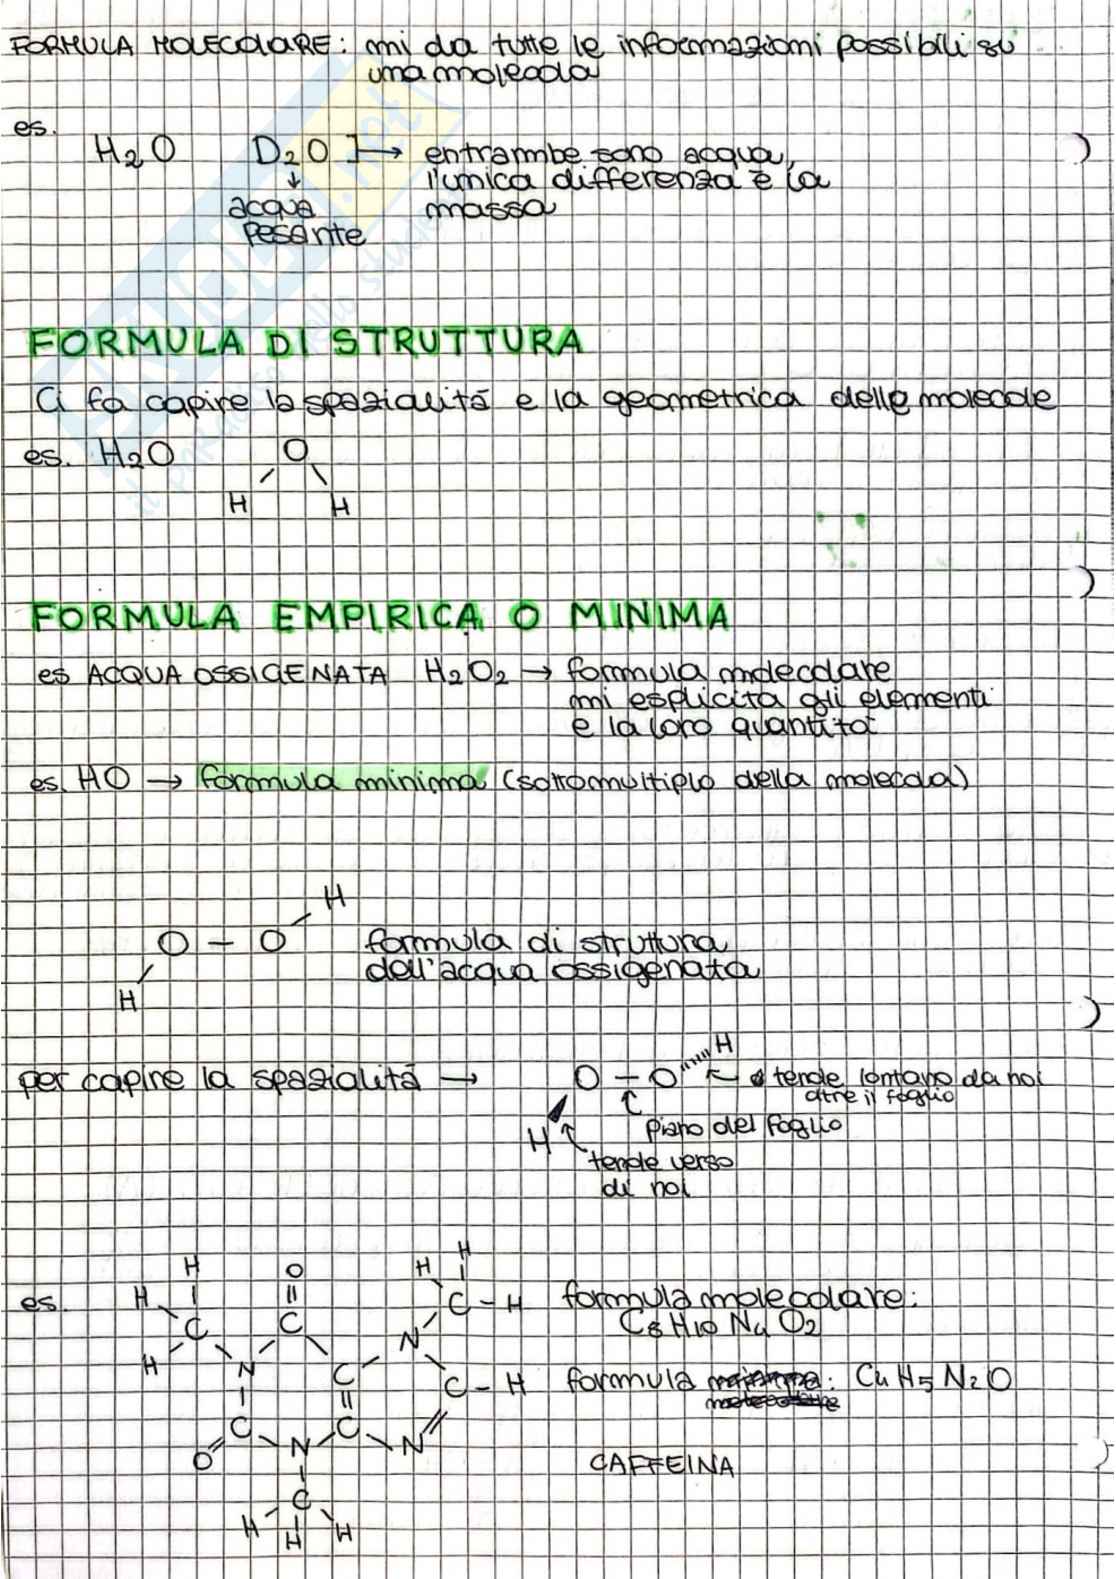 FORMULA MOLECOLARE: mi da tutte le informazioni possibili su
una molecola
es.
H2O D2O ]→ entrambe sono acqua,
↓ l'unica differenza è la
acqua massa
pesante
FORMULA DI STRUTTURA
Ci fa capire la spazialità e la geometrica delle molecole
es. H2O O
H H
FORMULA EMPIRICA O MINIMA
es ACQUA OSSIGENATA H2O2 → formula molecolare
mi esplicita gli elementi
e la loro quantità
es. HO → formula minima (sottomultiplo della molecola)
H
O - O formula di struttura
dell'acqua ossigenata
H
H
per capire la spazialità → O - O ← tende lontano da noi
oltre il foglio
piano del foglio
H
tende verso
di noi
H O H H
es. H C - H formula molecolare:
C C C8 H10 N4 O2
N
H N C C - H formula minima: C4 H5 N2 O
C C
O N N CAFFEINA
C
H H H